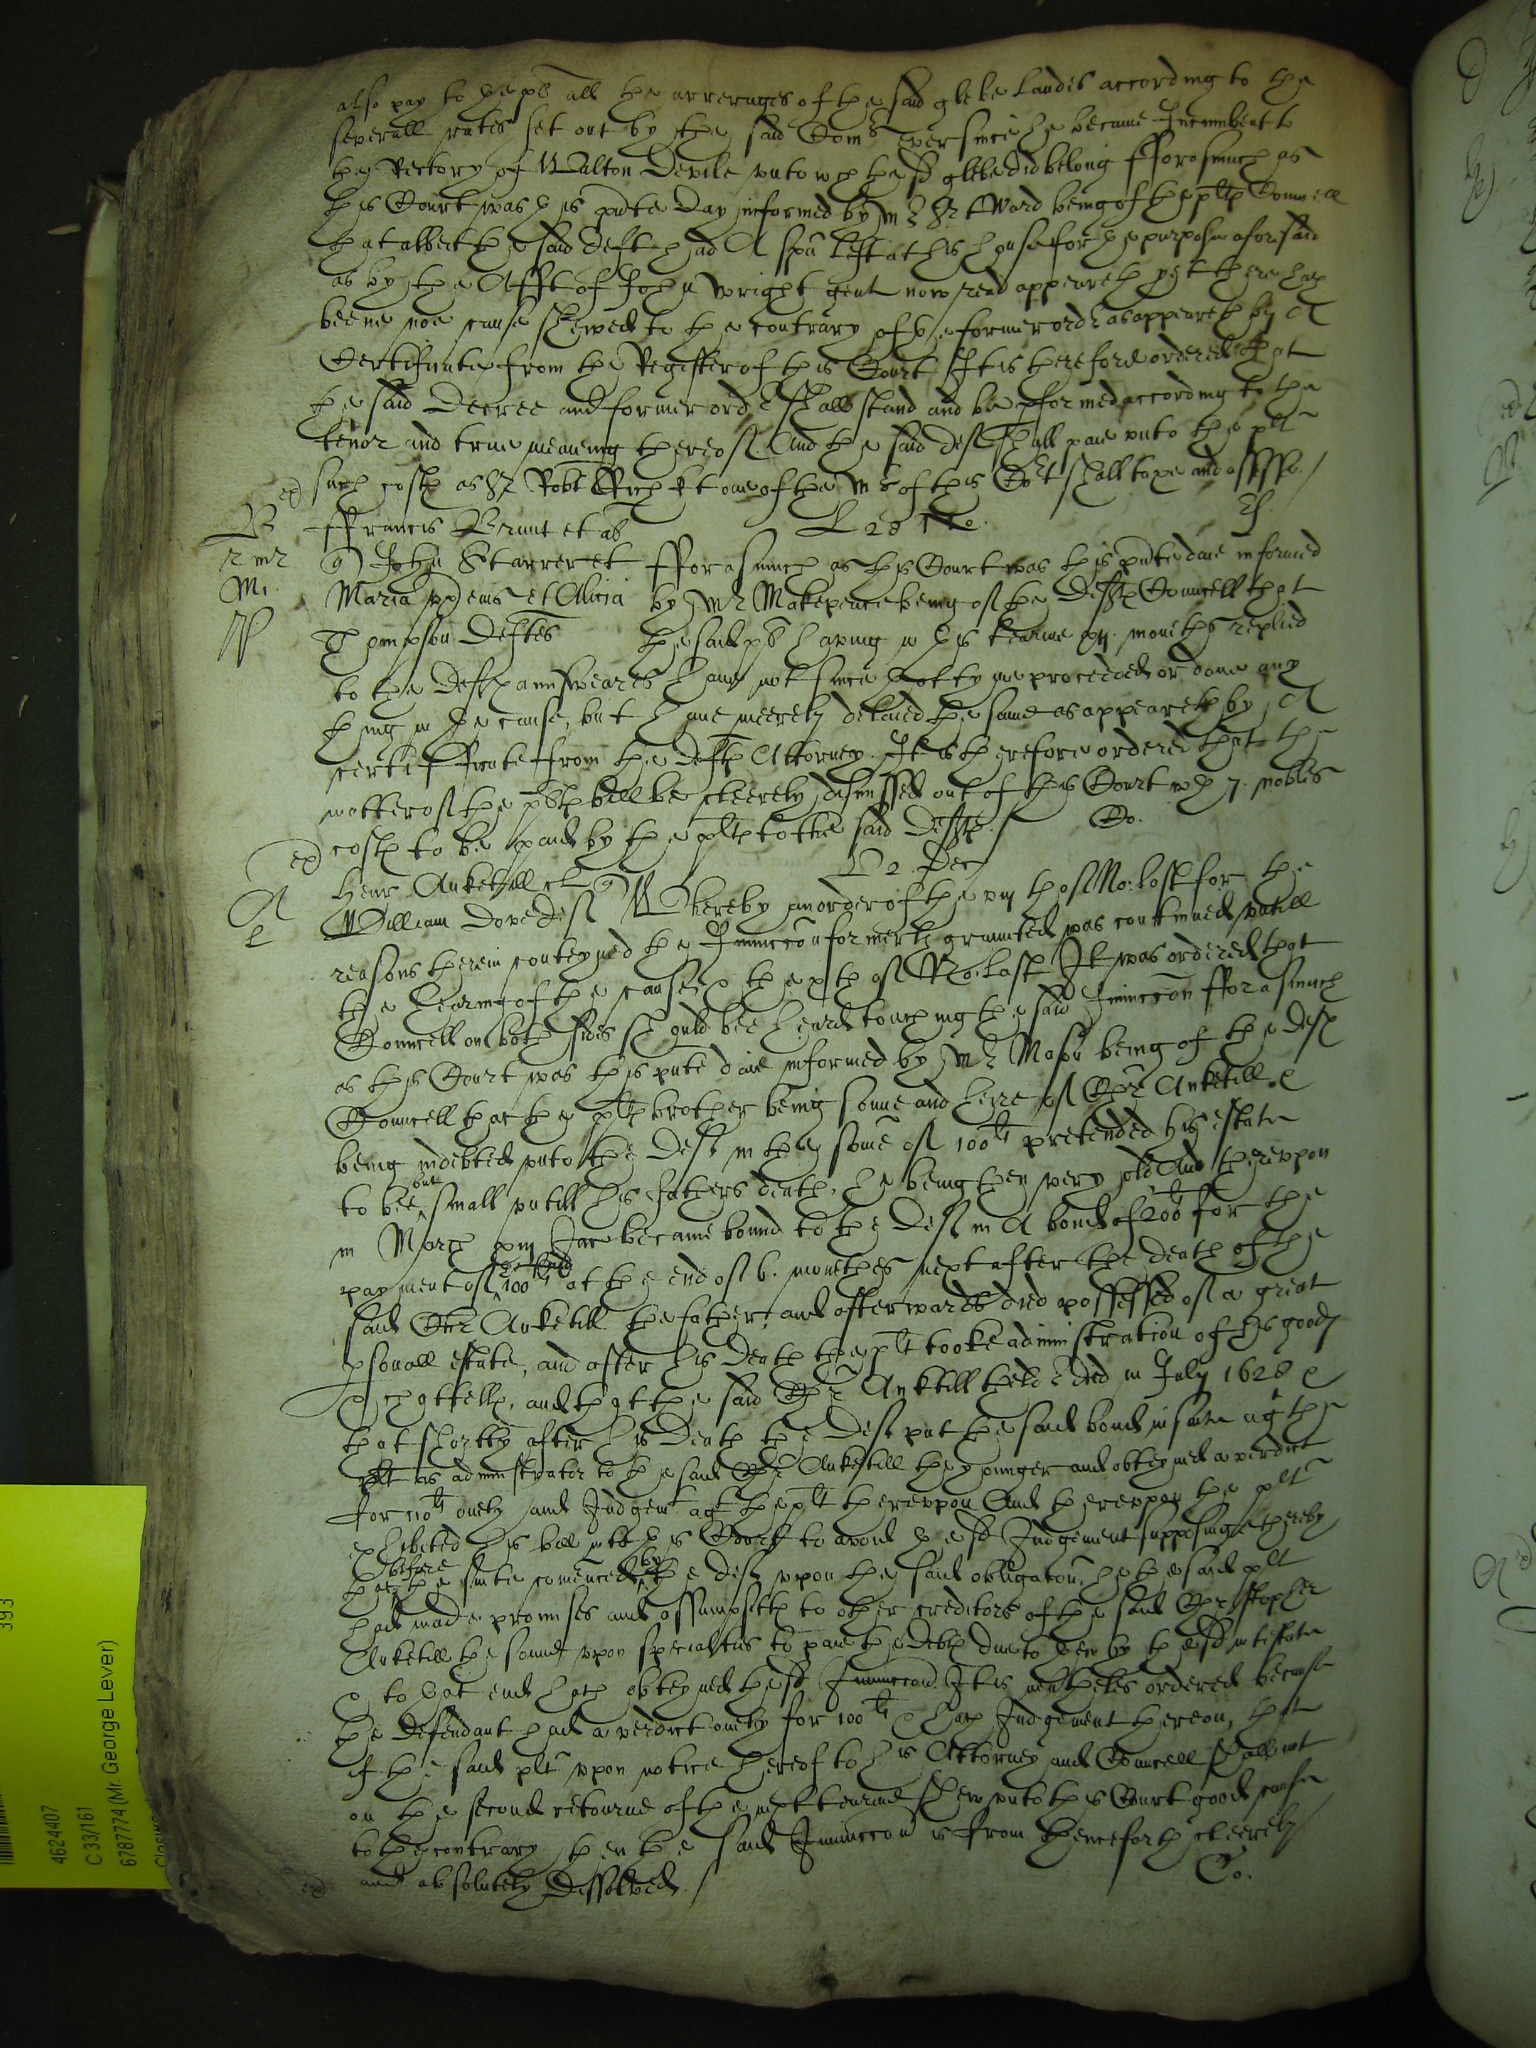 also pay to the pl all the arrerages of the said glebe landes according to the
severall rates set out by the said Com ever since he became Incumbent to
the Rectory of Walton Devile unto wch the sd glebe did belong fforasmuch as
this Court was this pnte day informed by Mr Ward being of the plts Councell
that albeit the said deft had A spa left at his house for the purpose aforesaid
as by the Afft of John Wright gent now read appeareth yet there hath
beene noe cause shewed to the contrary of the former order as appeareth by A
Certificate from the Register of this Court It is therefore ordered that
the said Decree and former order shall stand and be pformed according to the
tenor and true meaning thereof And the said deft shall paie unto the plt
such costs as Sr Robt Rich kt one of the Mrs of this Cot shall taxe and assesse
ffrancis Brunt et al
John Starrer et fforasmuch as this Court was this pnte daie informed
Maria et Alicia by Mr Makepeace being of the Defts Councell that
Thompson Deftes the said pl having in this tearme monethes replied
to the Defts answeares have not since that tyme proceeded or done any
thing in the cause, but have meerely delaied the same as appeareth by A
certifficate from the defts Attorney. It is therefore ordered that the
matter of the plts bill be cleerely dismissed out of this Court wth 7. nobles
costs to be paid by the plts to the said Defts. Co.
2 Dec
Henr Anketill
William Dove def Whereby an order of the viij th of No: last for the
reasons therein conteyned the Iniunccon formerly graunted was continued untill
the hearing of the cause the xth of No: last It was ordered that
Councell on both sides should bee heard touching the said Iniunccon fforasmuch
as this Court was this pnte daie informed by Mr Mason being of the def
Councell that the plts brother being sonne and heire of Chr Anketill
being indebted unto the Deft in the some of 100li pretended his estate
to bee but small untill his fathers death, he being then very old And thereupon
in March Jac became bound to the Def in A bond of 200li for the
payment of 100li at the end of 6. monethes next after the death of the
said Chr Anketill the father, and afterwards died possessed of a great
psonall estate, and after his death the plt tooke administration of his goods
chattells, and that the said Chr Anktill theld died in July 1628
that shortly after his death the Deft put the said bond in suite agt the
plt as administrator to the said Chr Anketill the younger and obteyned a verdict
for 110li onely and Iudgemt agt the plt thereupon And thereupon the plt
exhibited his bill into this Court to avoid the sd Iudgement supposing thereby
that before the suite comenced by the deft upon the said obligacon, he the said plt
had made promises and assumpsitts to other creditors of the said Christopher
Anketill the sonne upon specialties to paie the debts due to them by the sd intestate
to that end hath obteyned the sd Iniunccon. It is ordered because
the defendant had a verdict onely for 100li hath Iudgement thereon, that
if the said plt upon notice hereof to his Attorney and Councell shall not
on the second retourne of the next tearme shew unto this Court good cause
to the contrary, then the said Iniunccon is from thenceforth cleerely
and absolutely dissolved Co.
393
4624407
C 33/161
6787774 (Mr. George Lever)